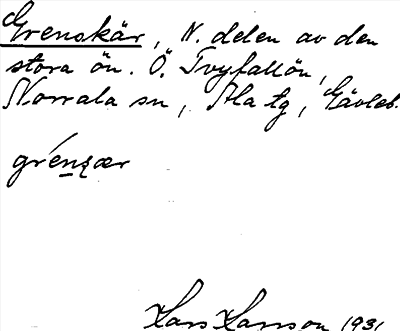 Grenskär, N. delen av den
stora ön. Ö. Tvyfallön,
Norrala sn, Ala tg, Gävleb.
grénʂær
Lars Larsson 1931